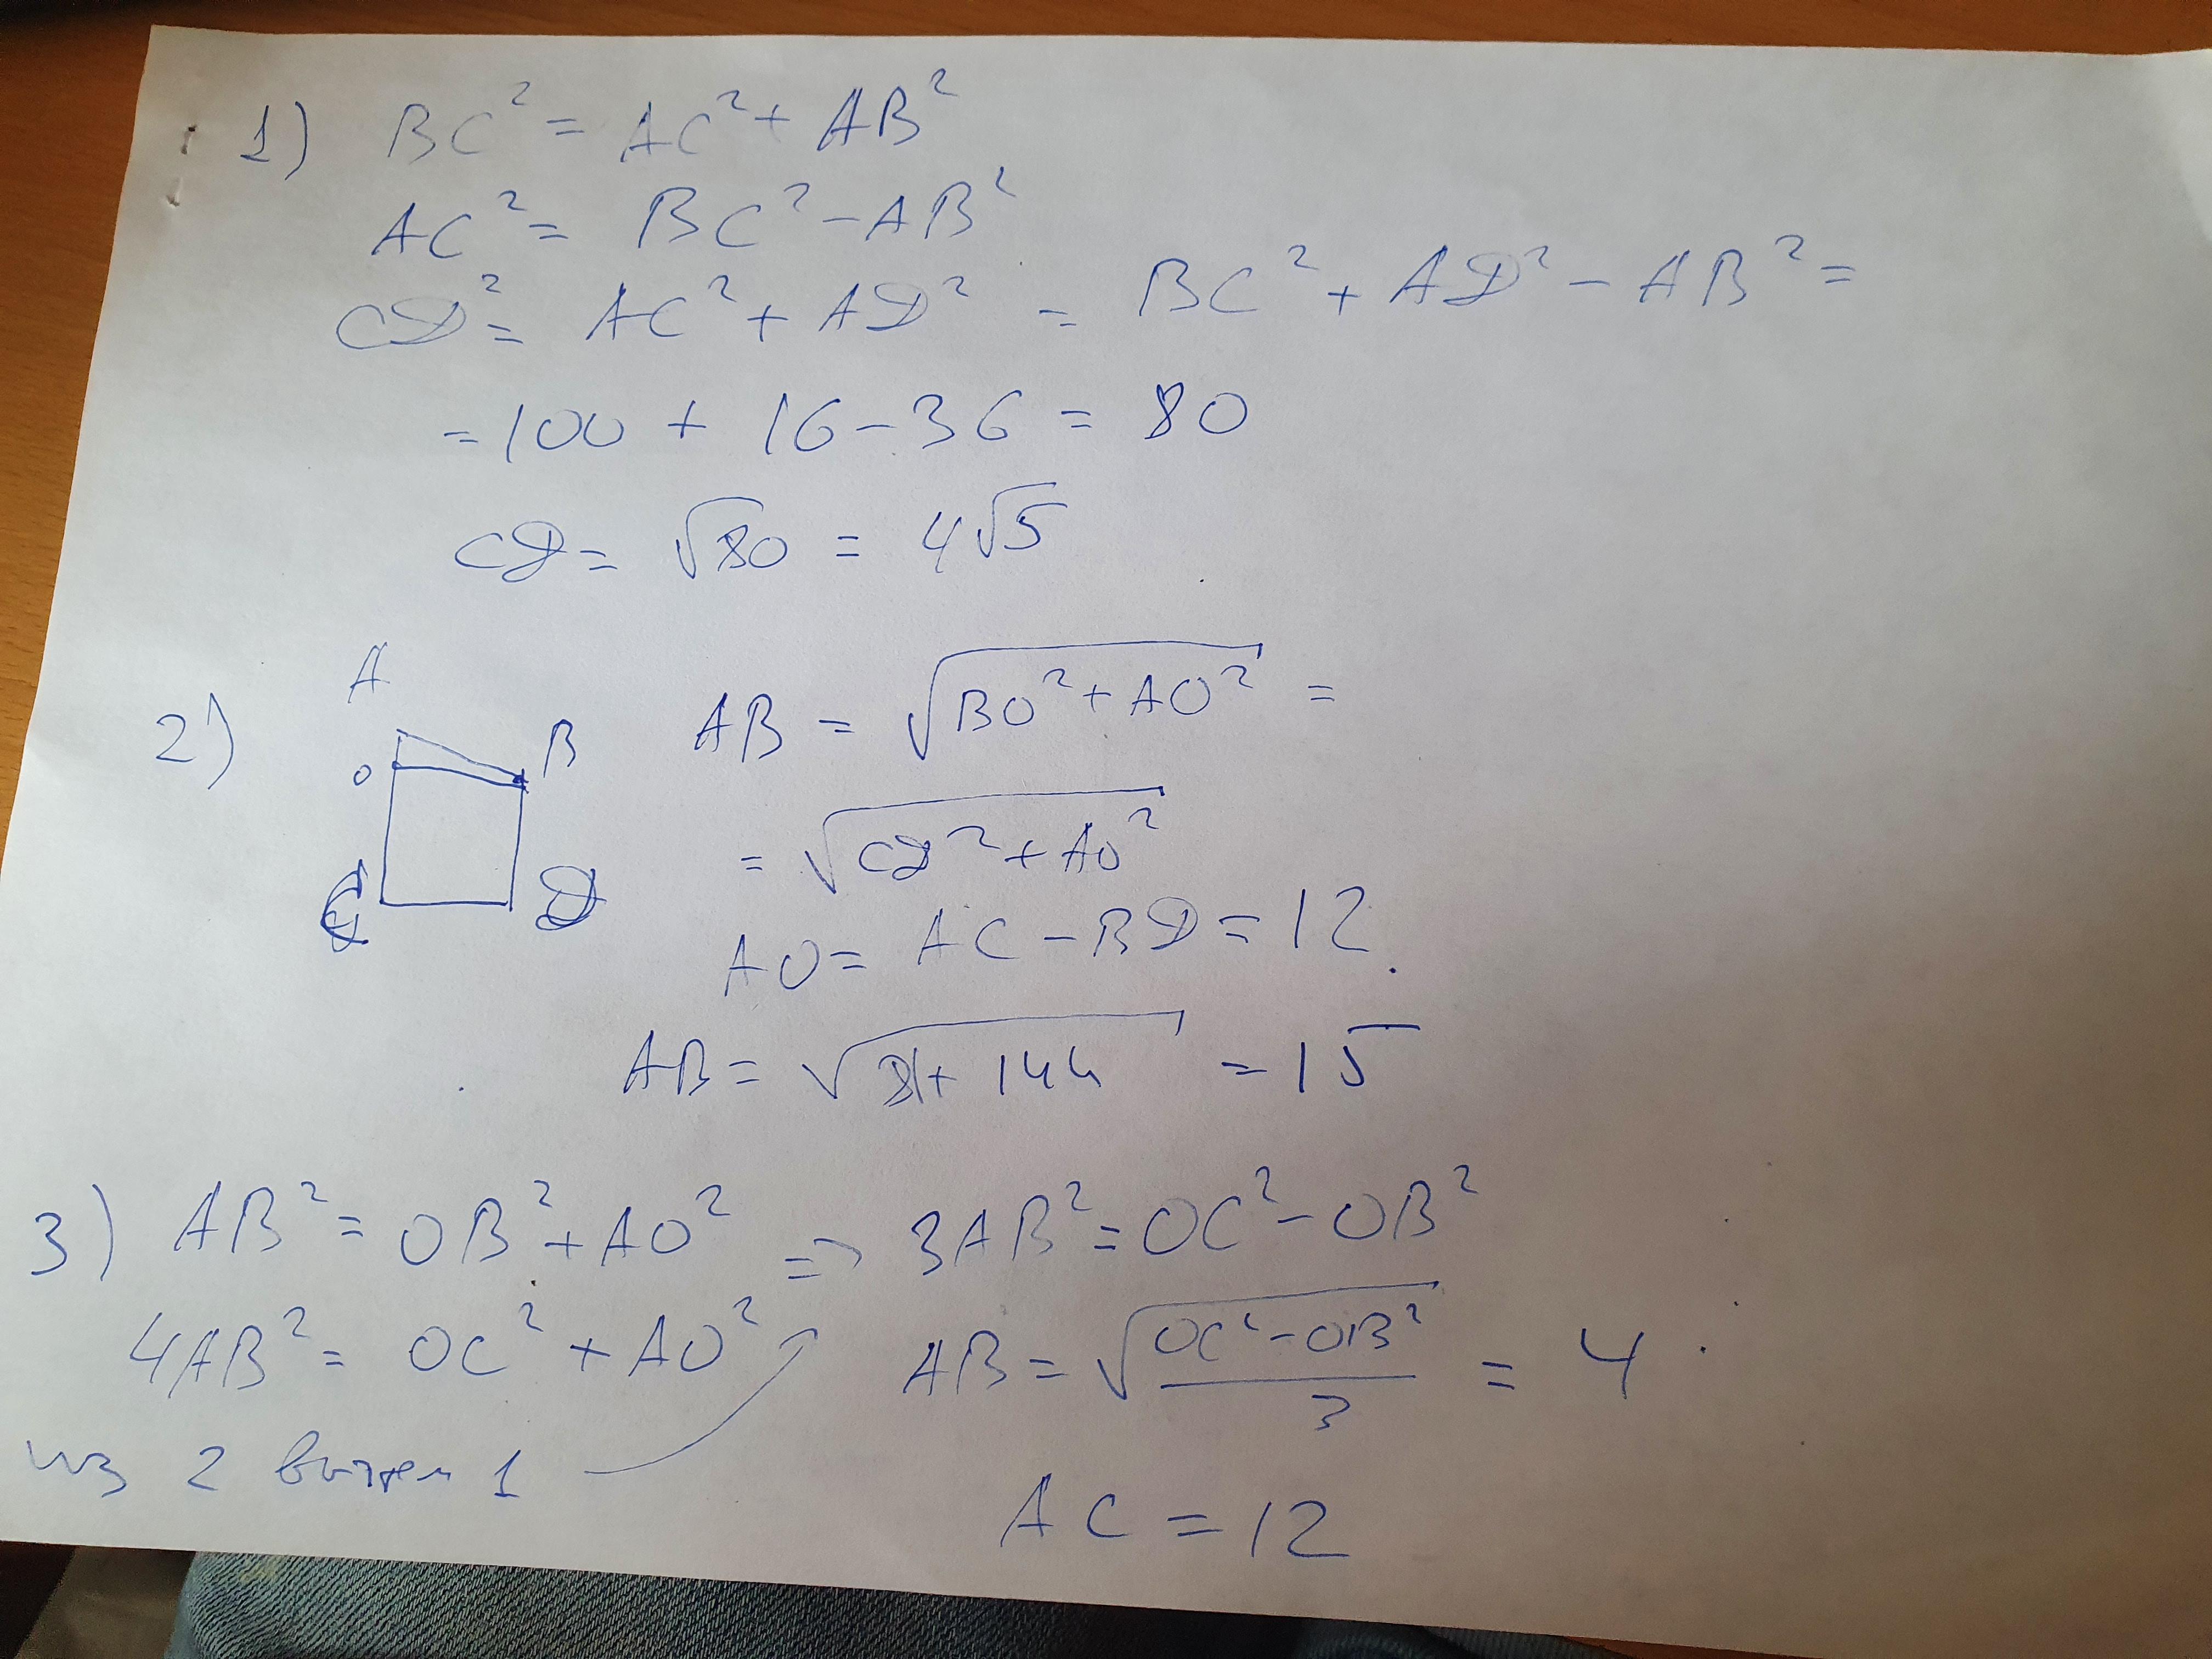 1) BC² = AC² + AB²
AC² = BC² - AB²
CD² = AC² + AD² = BC² + AD² - AB² =
= 100 + 16 - 36 = 80
CD = √80 = 4√5
2) A
O B
C D
AB = √(BO² + AO²) =
= √(CD² + AO²)
AO = AC - BD = 12.
AB = √(81 + 144) = 15
3) AB² = OB² + AO² => 3AB² = OC² - OB²
4AB² = OC² + AO² AB = √((OC² - OB²)/3) = 4
из 2 вычтем 1
AC = 12